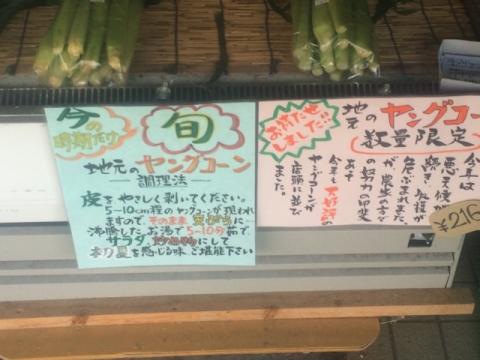 今の
時期だけ
旬
地元のヤングコーン
調理法
皮をやさしく剥いてください。
5-10cm程のヤングコーンが現われ
ますので、そのまま
沸騰したお湯で5-10分茹で、
サラダ、にして
初夏を感じる味ご堪能下さい
お待たせ
しました!!
地元のヤングコー
数量限定
今年は
悪天候が
続き、収穫が
危ぶまれました
が農家の方々
の努力の甲斐
あって
今年も大好評の
ヤングコーンが
店頭に並び
ました。
¥216